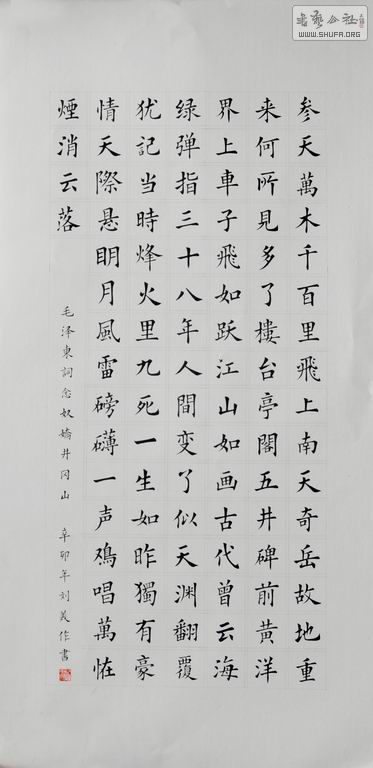 参天萬木千百里飛上南天奇岳故地重
来何所見多了樓台亭閣五井碑前黄洋
界上車子飛如跃江山如画古代曾云海
绿弹指三十八年人間变了似天渊翻覆
犹記当時烽火里九死一生如昨獨有豪
情天際悬眀月風雷磅礴一声鸡唱萬恠
煙消云落
毛泽東詞念奴嬌井冈山 辛卯年刘義作書
WWW.SHUFA.ORG